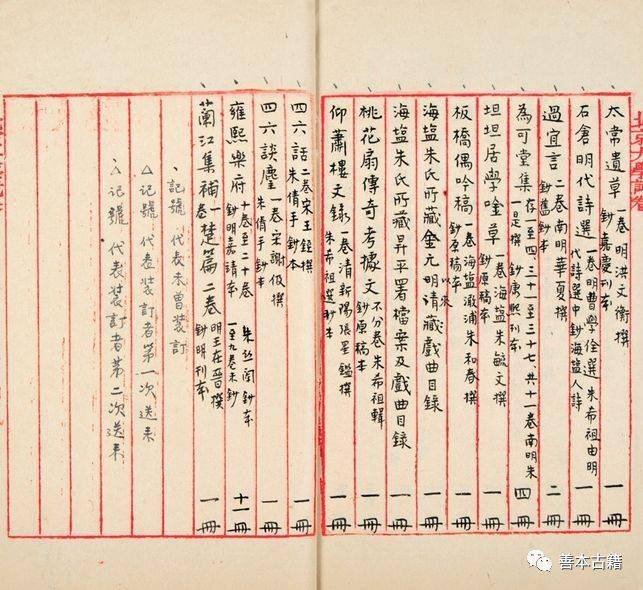 太常遺草 一卷明洪文衡撰 鈔嘉慶刊本 一冊
石倉明代詩選 一卷明曹學佺選 朱希祖由明代詩選中鈔海盐人詩 一冊
過宜言 二卷南明華夏撰 鈔舊鈔本 二冊
為可堂集 存一至四三十一至三十七、共十一卷南明朱一是撰 鈔康熙刊本 四冊
坦坦居學唫草 一卷海盐朱敏文撰 鈔原稿本 一冊
板橋偶吟稿 一卷海盐澉浦朱和春撰 鈔原稿本 一冊
海盐朱氏所藏金元明清藏戲曲目錄 以來 一冊
海盐朱氏所藏昇平署檔案及戲曲目錄 一冊
桃花扇傳奇考據文 不分卷朱希祖輯 鈔原稿本 一冊
仰蕭樓文錄 一卷清新陽張星鑑撰 朱希祖選鈔本 一冊
四六話 二卷宋王銍撰 朱倩手鈔本 一冊
四六談麈 一卷宋謝伋撰 朱倩手鈔本 一冊
雍熙樂府 十卷至二十卷 朱絲闌鈔本 鈔明嘉靖本 一至九卷未鈔 十一冊
蘭江集補一卷 楚篇二卷 明王在晉撰 鈔明刊本 一冊
、記號 代表未曾裝訂
△记號 代表装訂者第一次送来
.记號 代表装訂者第二次送来
善本古籍